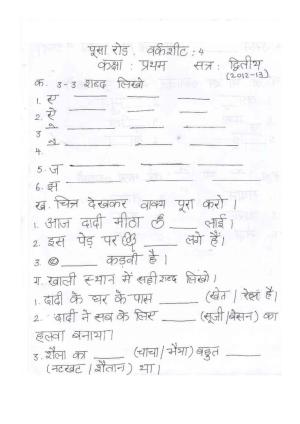 पूसा रोड. वर्कशीट : 4
कक्षा : प्रथम सत्र : द्वितीय
(2012-13)
क. 3-3 शब्द लिखो
1. ए
2. ऐ
3 े
4. ै
5. ज
6. झ
ख. चित्र देखकर वाक्य पूरा करो ।
1. आज दादी मीठा ______ लाई।
2. इस पेड़ पर ______ लगे हैं।
3. ______ कड़वी है।
ग. खाली स्थान में सही शब्द लिखो।
1. दादी के घर के पास ______ (खेत / है।
2. दादी ने सब के लिए ______ (सूजी/बेसन) का
हलवा बनाया।
3. शैला का ______ (चाचा/भैया) बहुत ______
(नटखट/शैतान) था।